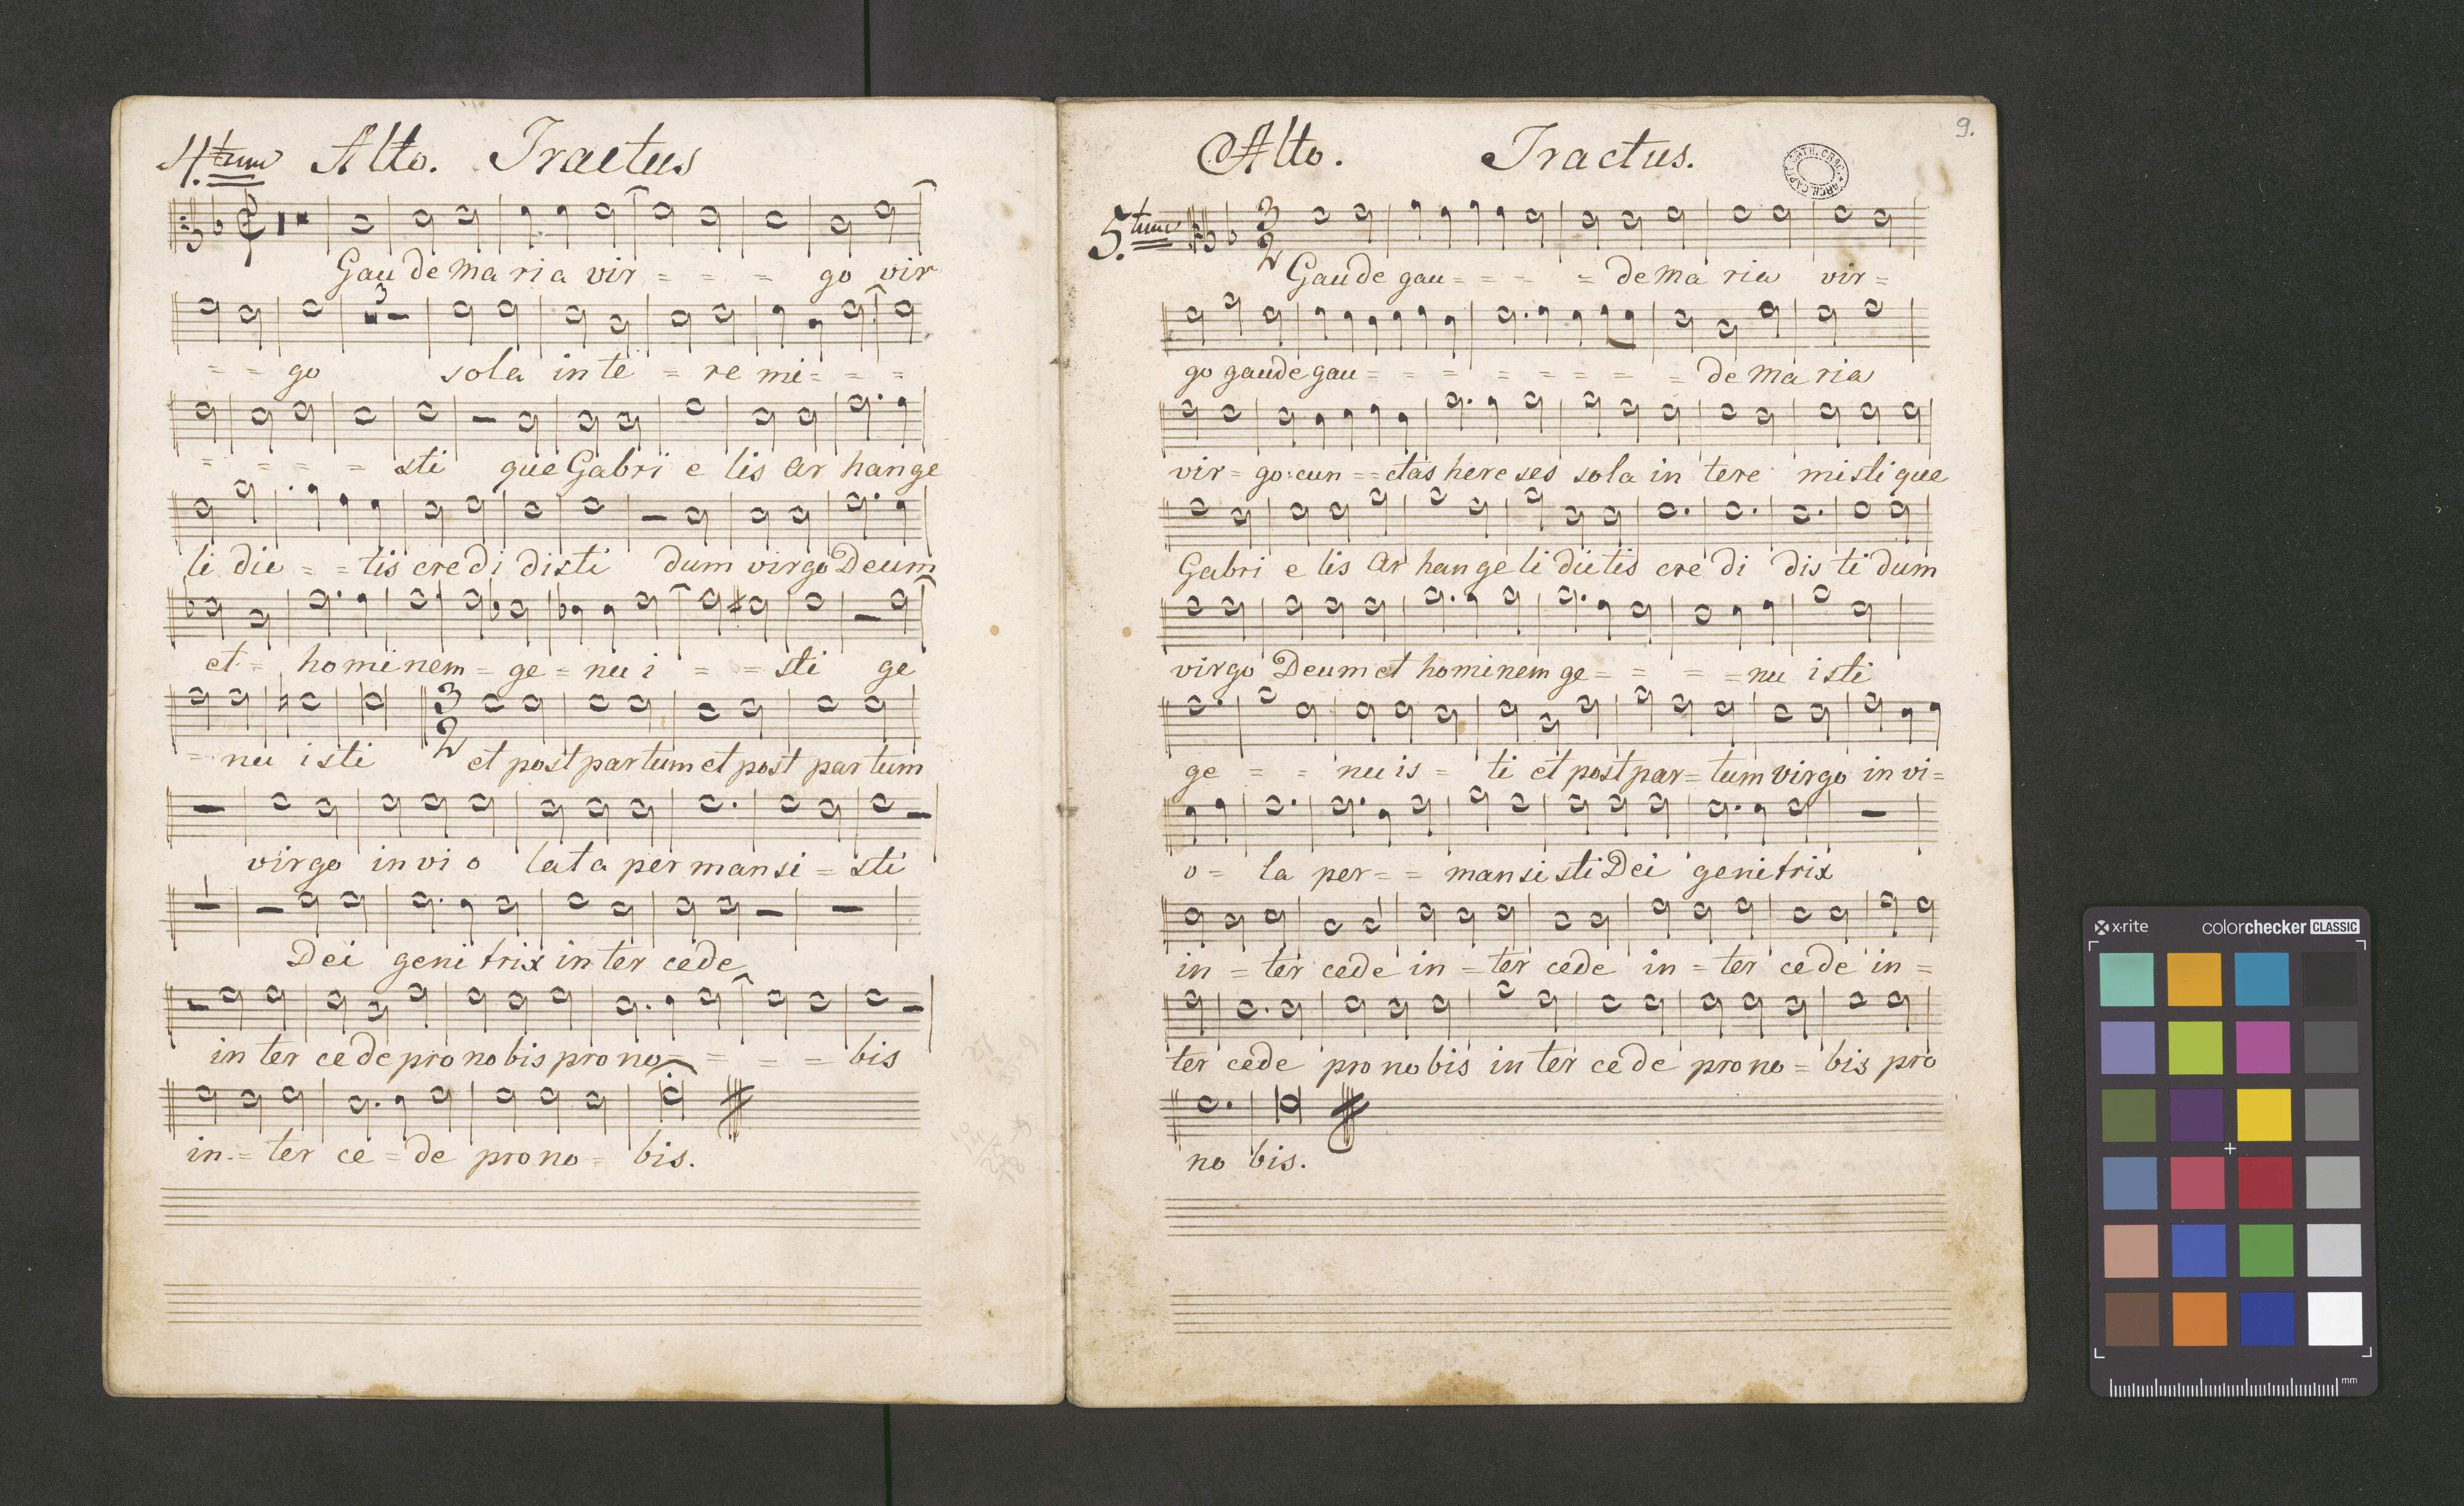 4.tum Alto. Tractus
Gau de Ma ri a vir = = = go vir
= = go sola in te = re mi = = =
= = = = sti que Gabri e lis Ar hange
li dic = = tis cre di disti dum virgo Deum
et = ho mi nem = ge = nu i = = sti ge
= nu i sti et post partum et post par tum
virgo in vi o lata per mansi = sti
Dei geni trix in ter cede
in ter ce de pro no bis pro no = = = = bis
in = ter ce = de pro no = bis.
9.
Alto. Tractus.
5.tum
Gau de gau = = = = de Ma ria vir =
go gaude gau = = = = = = = = de Ma ria
vir = go: cun = = ctas here ses sola in tere misti que
Gabri e lis Ar han ge li dictis cre di dis ti dum
virgo Deum et hominem ge = = = = nu i sti
ge = = nu is = ti et post par = tum virgo in vi =
o = la per = = mansi sti Dei geni trix
in = ter cede in = ter cede in = ter ce de in =
ter cede pro no bis in ter ce de pro no = bis pro
no bis.
x·rite colorchecker CLASSIC
mm